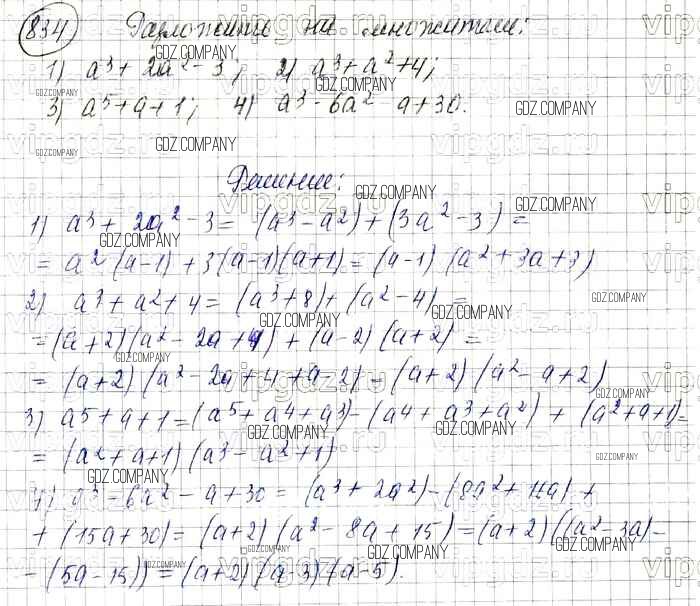 834 Разложите на множители:
1) a³ + 2a² - 3; 2) a³ + a² + 4;
3) a⁵ + a + 1; 4) a³ - 6a² - a + 30.
Решение:
1) a³ + 2a² - 3 = (a³ - a²) + (3a² - 3) =
= a² (a-1) + 3(a-1)(a+1) = (a-1) (a² + 3a + 3)
2) a³ + a² + 4 = (a³ + 8) + (a² - 4) =
= (a+2)(a² - 2a + 4) + (a-2)(a+2) =
= (a+2)(a² - 2a + 4 + a - 2) = (a+2)(a² - a + 2)
3) a⁵ + a + 1 = (a⁵ + a⁴ + a³) - (a⁴ + a³ + a²) + (a² + a + 1) =
= (a² + a + 1)(a³ - a² + 1)
4) a³ - 6a² - a + 30 = (a³ + 2a²) - (8a² + 16a) +
+ (15a + 30) = (a+2)(a² - 8a + 15) = (a+2)((a² - 3a) -
- (5a - 15)) = (a+2)(a-3)(a-5).
GDZ.COMPANY
vipgdz.ru